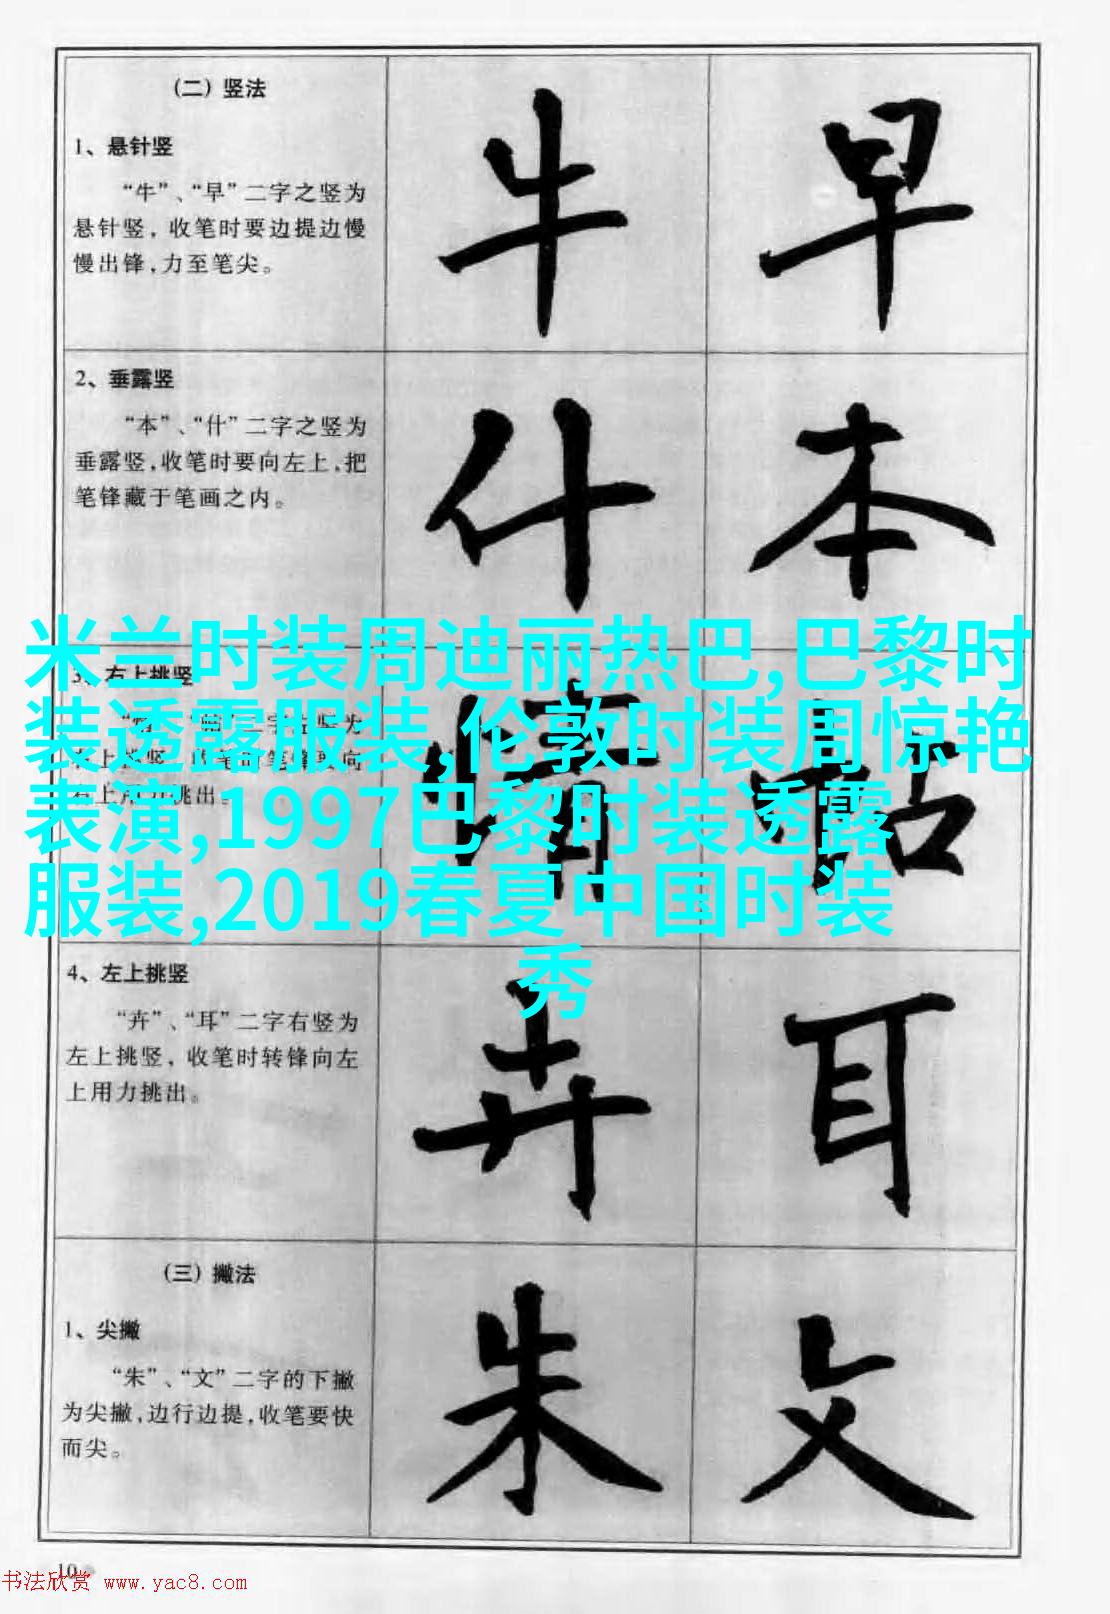 （二）竖法
牛
早
1、悬针竖
“牛”、“早”二字之竖为
悬针竖，收笔时要边提边慢
慢出锋，力至笔尖。
2、垂露竖
什
本
“本”、“什”二字之竖为
垂露竖，收笔时要向左上，把
笔锋藏于笔画之内。
米兰时装周迪丽热巴,巴黎时
装透露服装,伦敦时装周惊艳
表演,1997巴黎时装透露
服装,2019春夏中国时装
秀
右上挑竖
情
帖
4、左上挑竖
卉
耳
“卉”、“耳”二字右竖为
左上挑竖，收笔时转锋向左
上用力挑出。
（三）撇法
朱
文
1、尖撇
“朱”、“文”二字的下撇
为尖撇，边行边提，收笔要快
而尖。
10
书法欣赏 www.yac8.com